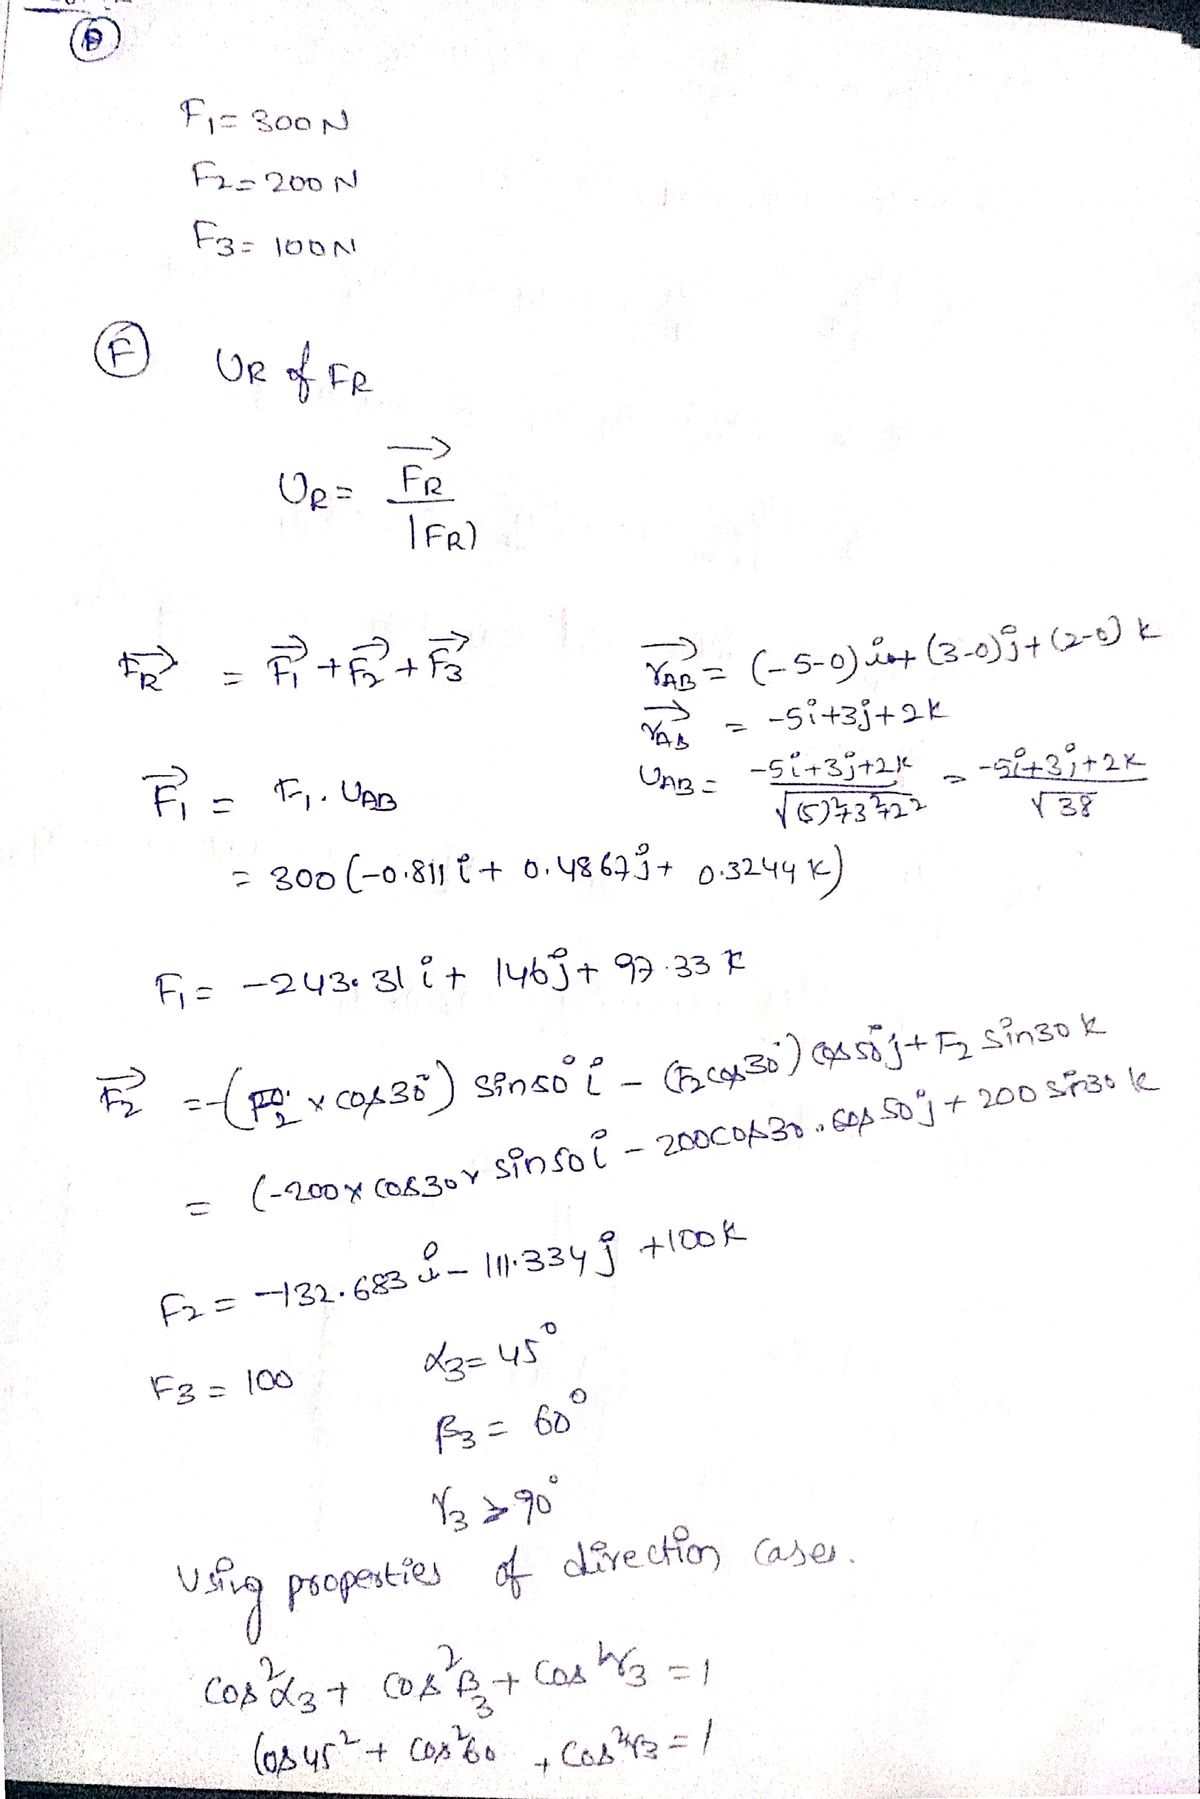 F₁ = 300 N
F₂ = 200 N
F₃ = 100 N
(F) UR of FR
UR = \vec{FR} / |FR)
\vec{FR} = \vec{F₁} + \vec{F₂} + \vec{F₃}
\vec{rAB} = (-5-0) i + (3-0) j + (2-0) k
\vec{rAB} = -5i + 3j + 2k
UAB = (-5i + 3j + 2k) / √((5)² + 3² + 2²) = (-5i + 3j + 2k) / √38
\vec{F₁} = F₁ . UAB
= 300 (-0.811 i + 0.4867 j + 0.3244 k)
F₁ = -243.31 i + 146 j + 97.33 k
\vec{F₂} = -(F₂ × cos30°) sin50° i - (F₂ cos30°) cos50° j + F₂ sin30 k
= (-200 × cos30 × sin50 i - 200 cos30 . cos50° j + 200 sin30 k
F₂ = -132.683 i - 111.334 j + 100 k
F₃ = 100 α₃ = 45°
β₃ = 60°
γ₃ > 90°
Using properties of direction cases.
cos²α₃ + cos²β₃ + cos²γ₃ = 1
Cos 45² + cos²60 + cos²γ₃ = 1